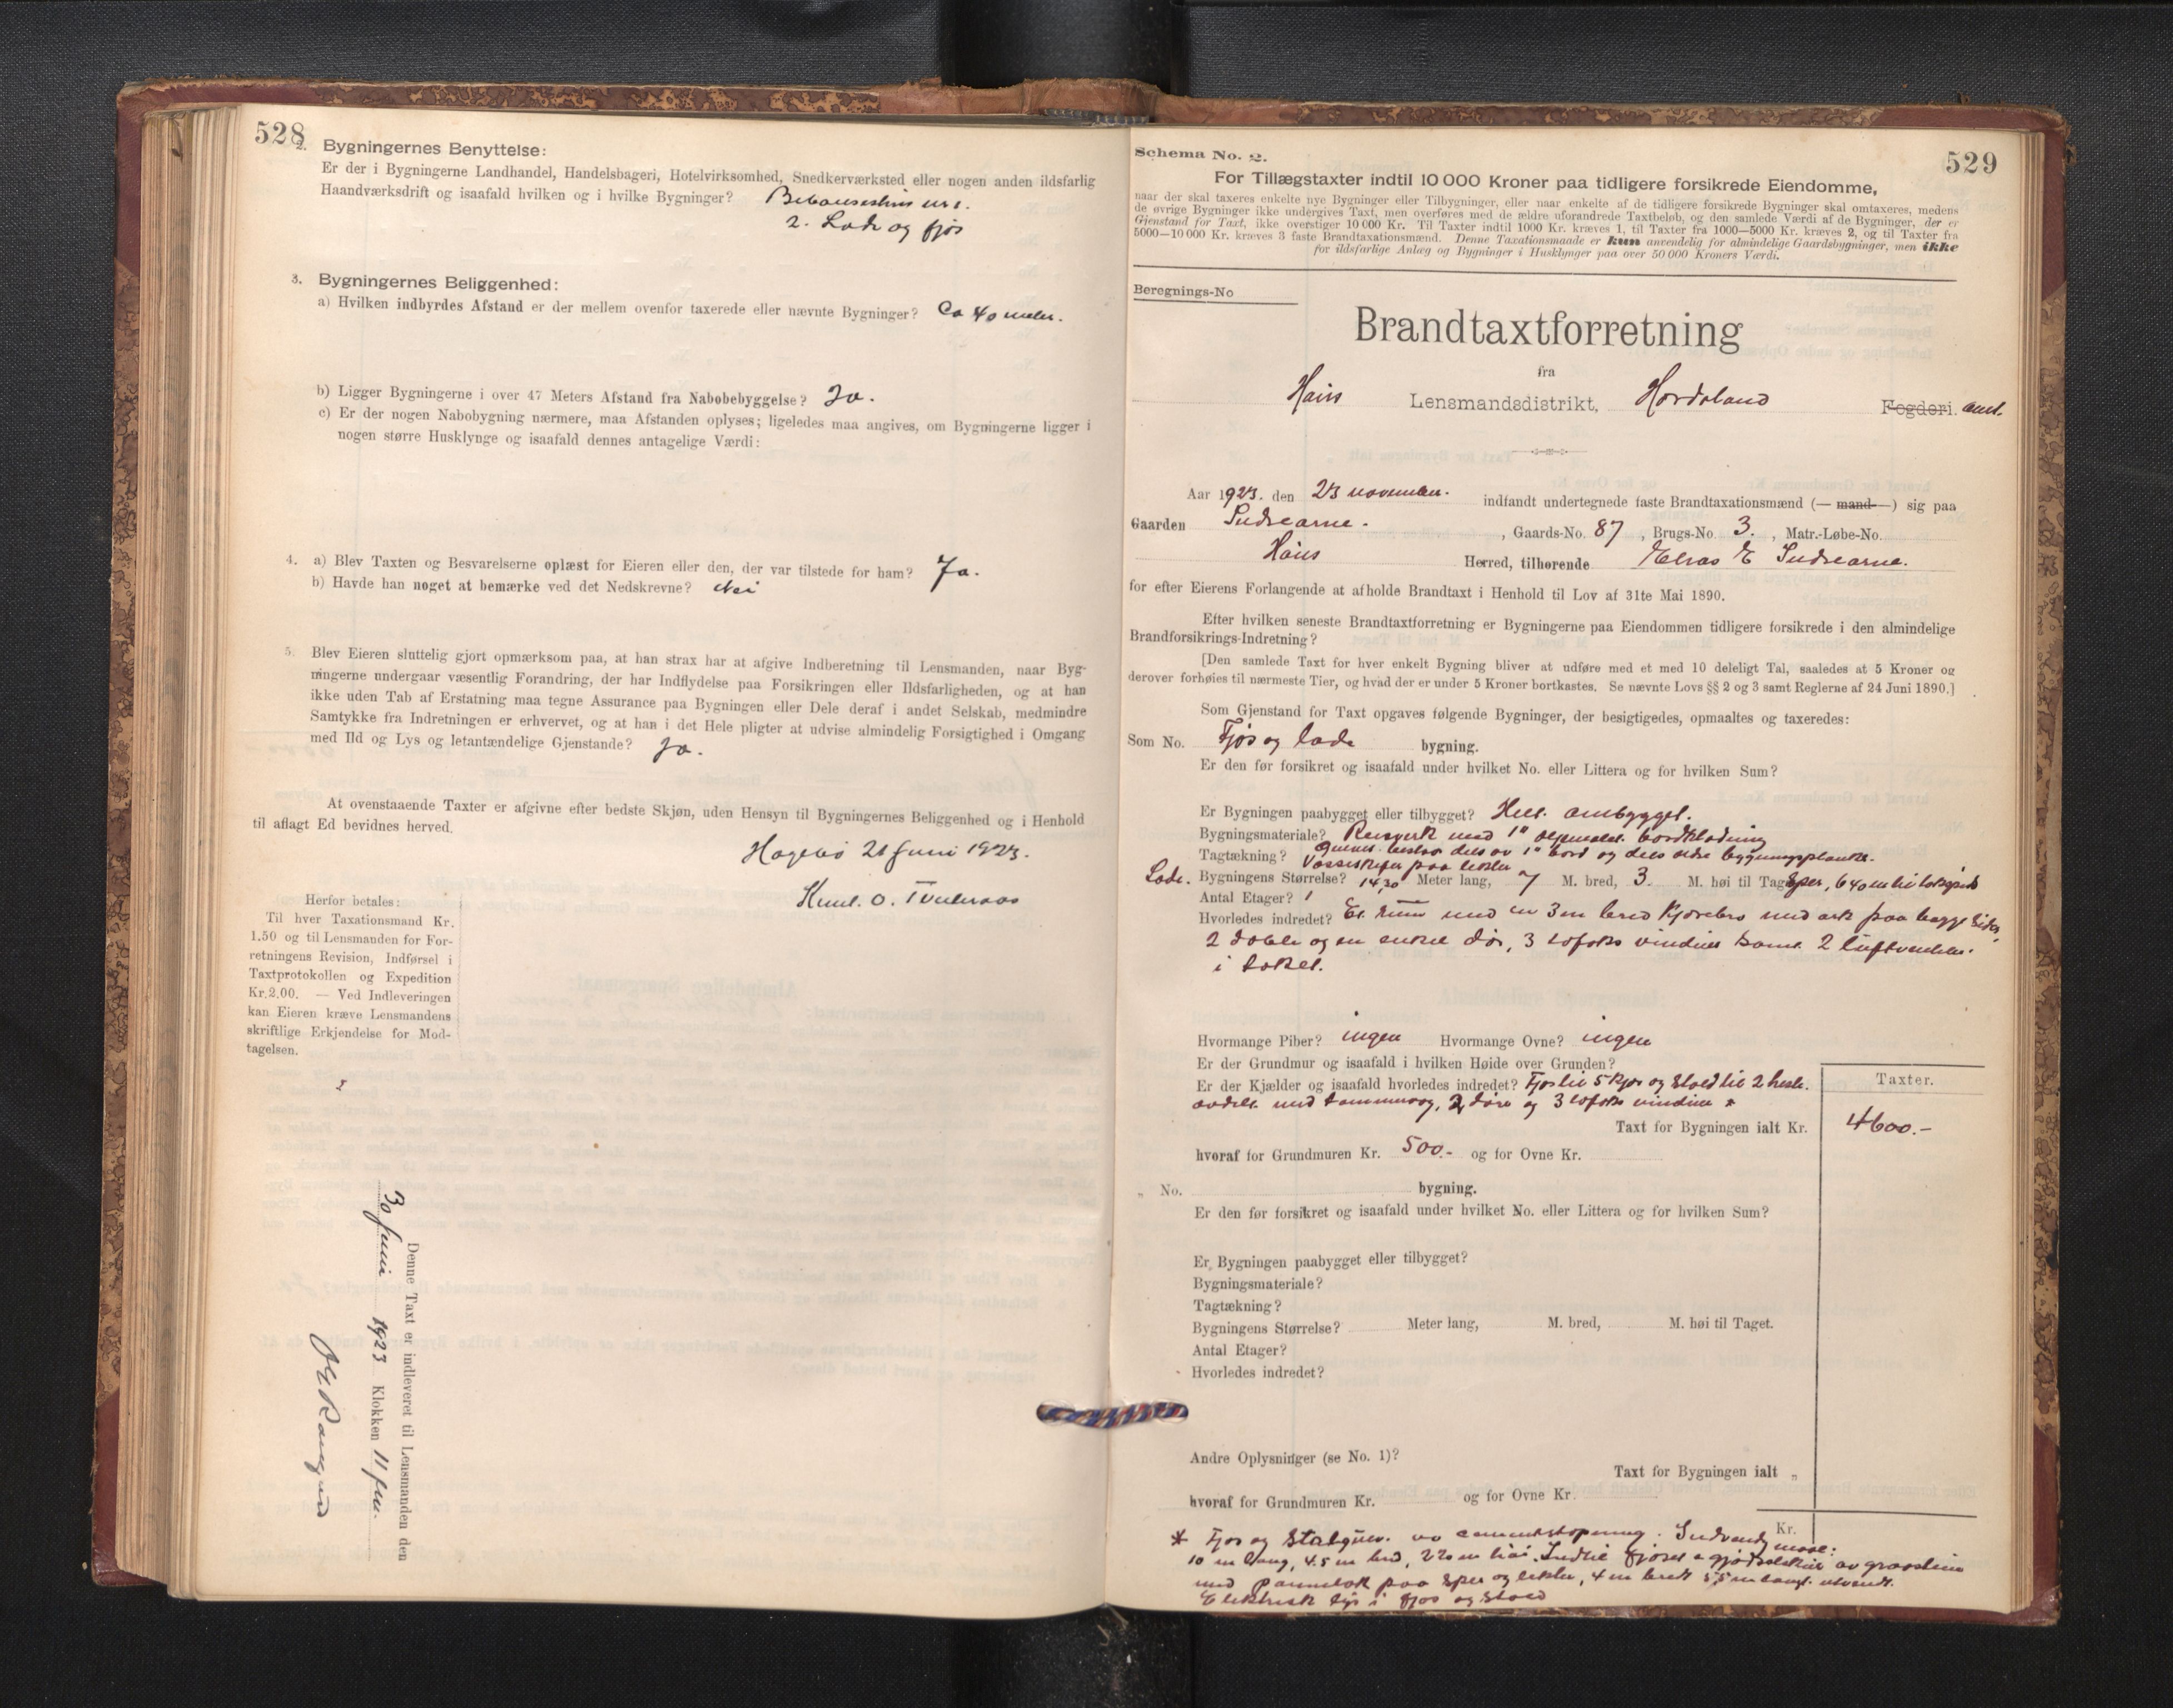 528
2. Bygningernes Benyttelse:
Er der i Bygningerne Landhandel, Handelsbageri, Hotelvirksomhed, Snedkerværksted eller nogen anden ildsfarlig
Haandværksdrift og isaafald hvilken og i hvilke Bygninger?
2. Lade og fjøs
3. Bygningernes Beliggenhed:
a) Hvilken indbyrdes Afstand er der mellem ovenfor taxerede eller nævnte Bygninger? Ca 40 meter.
b) Ligger Bygningerne i over 47 Meters Afstand fra Nabobebyggelse? Ja.
c) Er der nogen Nabobygning nærmere, maa Afstanden oplyses; ligeledes maa angives, om Bygningerne ligger i
nogen større Husklynge og isaafald dennes antagelige Værdi:
4. a) Blev Taxten og Besvarelserne oplæst for Eieren eller den, der var tilstede for ham? Ja.
b) Havde han noget at bemærke ved det Nedskrevne? Nei
5. Blev Eieren sluttelig gjort opmærksom paa, at han strax har at afgive Indberetning til Lensmanden, naar Byg-
ningerne undergaar væsentlig Forandring, der har Indflydelse paa Forsikringen eller Ildsfarligheden, og at han
ikke uden Tab af Erstatning maa tegne Assurance paa Bygningen eller Dele deraf i andet Selskab, medmindre
Samtykke fra Indretningen er erhvervet, og at han i det Hele pligter at udvise almindelig Forsigtighed i Omgang
med Ild og Lys og letantændelige Gjenstande? Ja.
At ovenstaaende Taxter er afgivne efter bedste Skjøn, uden Hensyn til Bygningernes Beliggenhed og i Henhold
til aflagt Ed bevidnes herved.
21 Juni 1923.
Knut. O.
Herfor betales:
Til hver Taxationsmand Kr.
1.50 og til Lensmanden for For-
retningens Revision, Indførsel i
Taxtprotokollen og Expedition
Kr. 2.00. — Ved Indleveringen
kan Eieren kræve Lensmandens
skriftlige Erkjendelse for Mod-
tagelsen.
Denne Taxt er indleveret til Lensmanden den
30 Juni 1923 Klokken 11 fm.
529
Schema No. 2.
For Tillægstaxter indtil 10 000 Kroner paa tidligere forsikrede Eiendomme,
naar der skal taxeres enkelte nye Bygninger eller Tilbygninger, eller naar enkelte af de tidligere forsikrede Bygninger skal omtaxeres, medens
de øvrige Bygninger ikke undergives Taxt, men overføres med de ældre uforandrede Taxtbeløb, og den samlede Værdi af de Bygninger, der er
Gjenstand for Taxt, ikke overstiger 10 000 Kr. Til Taxter indtil 1000 Kr. kræves 1, til Taxter fra 1000—5000 Kr. kræves 2, og til Taxter fra
5000—10 000 Kr. kræves 3 faste Brandtaxationsmænd. Denne Taxationsmaade er kun anvendelig for almindelige Gaardsbygninger, men ikke
for ildsfarlige Anlæg og Bygninger i Husklynger paa over 50 000 Kroners Værdi.
Beregnings-No
Brandtaxtforretning
fra
Haus Lensmandsdistrikt, Hordaland Fogderi. amt.
Aar 1923. den 23 november. indfandt undertegnede faste Brandtaxationsmænd (— mand —) sig paa
Gaarden Indrearne. , Gaards-No. 87 , Brugs-No. 3. , Matr.-Løbe-No.
Haus Herred, tilhørende Elias E Indrearne.
for efter Eierens Forlangende at afholde Brandtaxt i Henhold til Lov af 31te Mai 1890.
Efter hvilken seneste Brandtaxtforretning er Bygningerne paa Eiendommen tidligere forsikrede i den almindelige
Brandforsikrings-Indretning?
[Den samlede Taxt for hver enkelt Bygning bliver at udføre med et med 10 deleligt Tal, saaledes at 5 Kroner og
derover forhøies til nærmeste Tier, og hvad der er under 5 Kroner bortkastes. Se nævnte Lovs §§ 2 og 3 samt Reglerne af 24 Juni 1890.]
Som Gjenstand for Taxt opgaves følgende Bygninger, der besigtigedes, opmaaltes og taxeredes:
Som No. Fjøs og lade bygning.
Er den før forsikret og isaafald under hvilket No. eller Littera og for hvilken Sum?
Er Bygningen paabygget eller tilbygget? Helt ombygget.
Bygningsmateriale? Reisverk med 1" oljemalet bordklædning
gulvet bestaar dels av 1" bord og dels ældre bygningsplanke.
Tagtækning? Vosseskifer paa lekter
Lade. Bygningens Størrelse? 14,30 Meter lang, 7 M. bred, 3. M. høi til Taget
Antal Etager? 1
Hvorledes indredet? Et rum med en 3 m bred kjørebro med ark paa begge sider,
2 doble og en enkel dør, 3 4 fags vinduer samt 2
i taket.
Hvormange Piber? ingen Hvormange Ovne? ingen
Er der Grundmur og isaafald i hvilken Høide over Grunden?
Er der Kjælder og isaafald hvorledes indredet? Fjøs til 5 kjør og stald til 2 heste.
avdelt med tømmervæg, 2 døre og 3 vinduer *
Taxter.
Taxt for Bygningen ialt Kr. 4600.-
hvoraf for Grundmuren Kr. 500.- og for Ovne Kr.
" No. bygning.
Er den før forsikret og isaafald under hvilket No. eller Littera og for hvilken Sum?
Er Bygningen paabygget eller tilbygget?
Bygningsmateriale?
Tagtækning?
Bygningens Størrelse? Meter lang, M. bred, M. høi til Taget.
Antal Etager?
Hvorledes indredet?
Andre Oplysninger (se No. 1)?
Taxt for Bygningen ialt "
hvoraf for Grundmuren Kr. og for Ovne Kr.
Kr.
* Fjøs og stalgulv av cementstøpning. Indvendig maal:
10 m lang, 4.5 m bred, 220 m høi. Indtil fjøset gjødselskjul av graasten
med pannetak paa sper og lekter, 4 m bredt 5,5 m langt utvendt.
Elektrisk lys i fjøs og stald